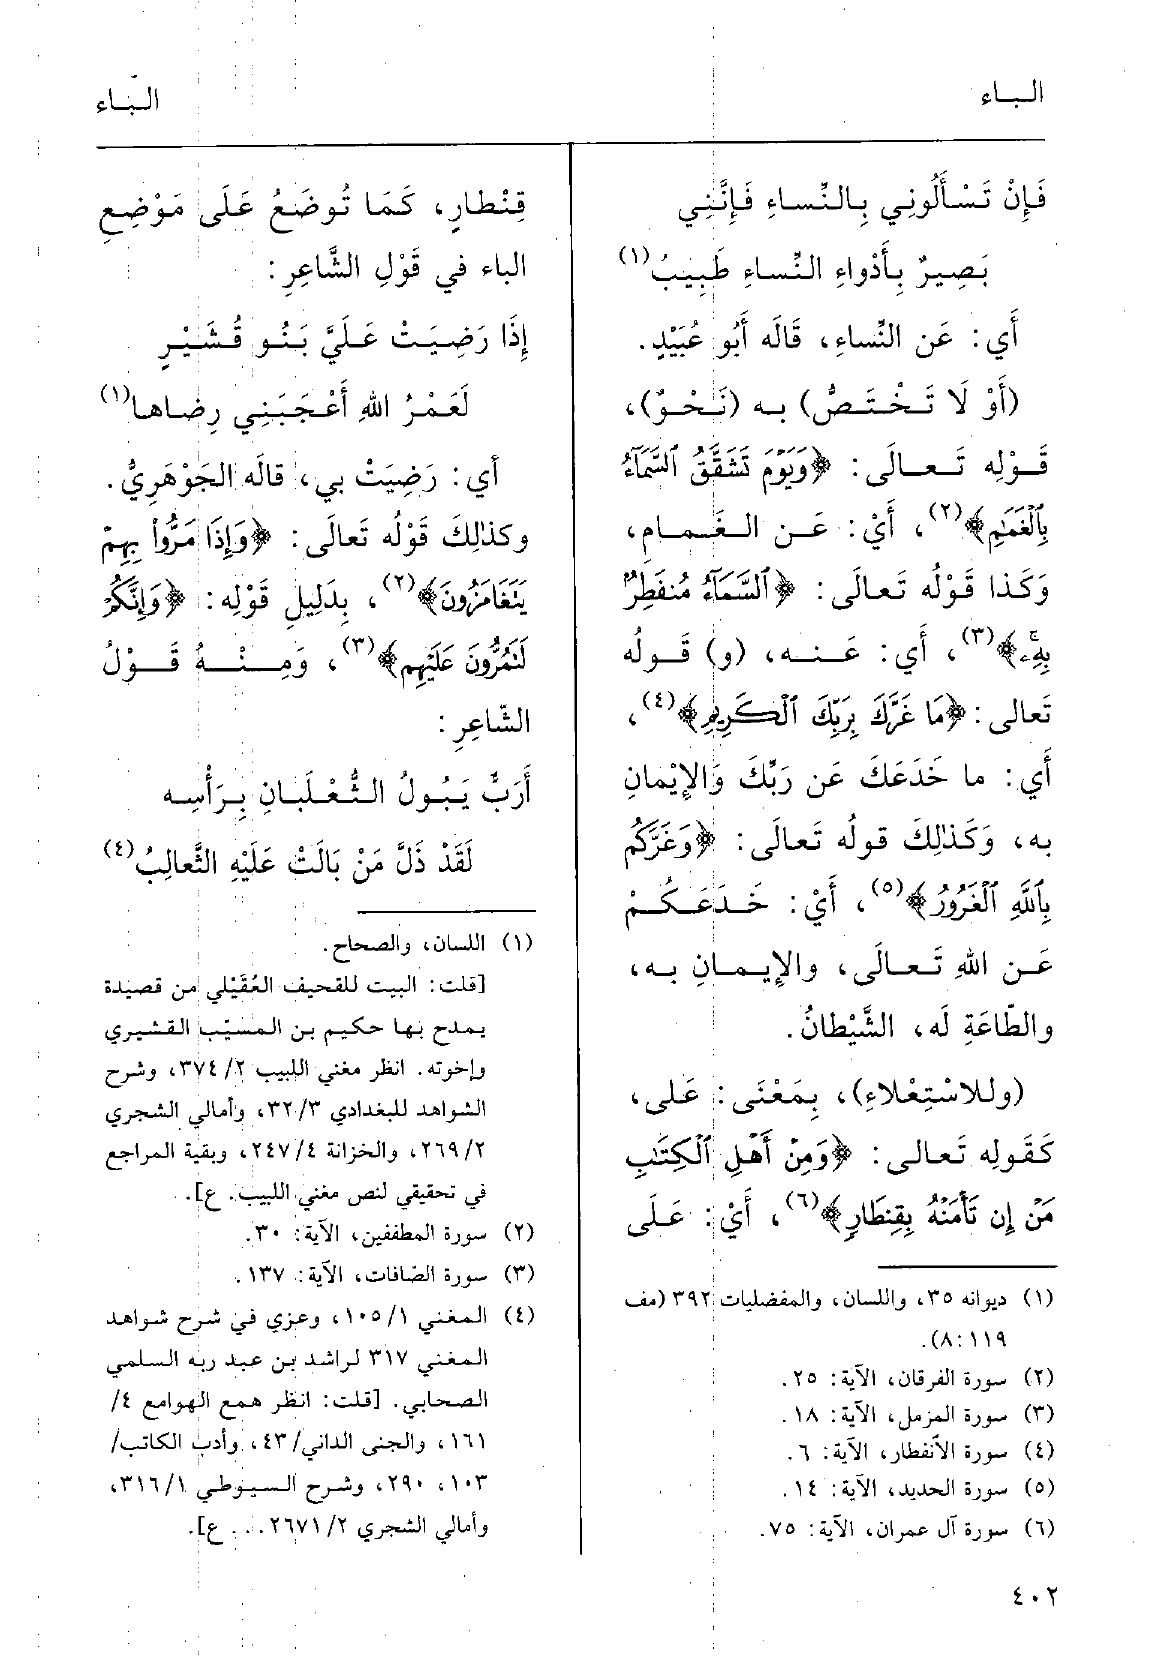 الباء
الباء
فَإِنْ تَسْأَلُونِي بِالنِّساءِ فَإِنَّنِي
بَصِيرٌ بِأَدْواءِ النِّساءِ طَبِيبُ(١)
أَي: عَن النِّساءِ، قَالَه أَبُو عُبَيْدٍ.
(أَوْ لَا تَخْتَصُّ) به (نَحْوُ)،
قَوْلِه تَعالَى: ﴿وَيَوْمَ تَشَقَّقُ ٱلسَّمَآءُ
بِٱلْغَمَٰمِ﴾(٢)، أَيْ: عَن الغَمامِ،
وَكَذا قَوْلُه تَعالَى: ﴿ٱلسَّمَآءُ مُنفَطِرٌۢ
بِهِۦۚ﴾(٣)، أَي: عَنه، (و) قَولُه
تَعالى: ﴿مَا غَرَّكَ بِرَبِّكَ ٱلْكَرِيمِ﴾(٤)،
أَي: ما خَدَعَكَ عَن رَبِّكَ وَالإِيْمانِ
به، وَكَذٰلِكَ قولُه تَعالَى: ﴿وَغَرَّكُم
بِٱللَّهِ ٱلْغَرُورُ﴾(٥)، أَيْ: خَدَعَكُمْ
عَن اللهِ تَعالَى، والإِيمانِ به،
والطّاعَةِ لَه، الشَّيْطانُ.
(وللاسْتِعْلاءِ)، بِمَعْنَى: عَلى،
كَقَولِه تَعالى: ﴿وَمِنْ أَهْلِ ٱلْكِتَٰبِ
مَنْ إِن تَأْمَنْهُ بِقِنطَارٍ﴾(٦)، أَيْ: عَلَى
(١) ديوانه ٣٥، واللسان، والمفضليات ٣٩٢ (مف
١١٩:٨).
(٢) سورة الفرقان، الآية: ٢٥.
(٣) سورة المزمل، الآية: ١٨.
(٤) سورة الأنفطار، الآية: ٦.
(٥) سورة الحديد، الآية: ١٤.
(٦) سورة آل عمران، الآية: ٧٥.
قِنْطارٍ، كَمَا تُوضَعُ عَلَى مَوْضِعِ
الباء في قَوْلِ الشَّاعِرِ:
إِذَا رَضِيَتْ عَلَيَّ بَنُو قُشَيْرٍ
لَعَمْرُ اللهِ أَعْجَبَنِي رِضاها(١)
أَي: رَضِيَتْ بي، قالَه الجَوْهَرِيُّ.
وكذٰلِكَ قَوْلُه تَعالَى: ﴿وَإِذَا مَرُّوا۟ بِهِمْ
يَتَغَامَزُونَ﴾(٢)، بِدَلِيلِ قَوْلِه: ﴿وَإِنَّكُمْ
لَتَمُرُّونَ عَلَيْهِم﴾(٣)، وَمِنْهُ قَوْلُ
الشّاعِرِ:
أَرَبٌّ يَبُولُ الثُّعْلَبانِ بِرَأْسِه
لَقَدْ ذَلَّ مَنْ بَالَتْ عَلَيْهِ الثَّعالِبُ(٤)
(١) اللسان، والصحاح.
[قلت: البيت للقحيف العُقَيْلي من قصيدة
يمدح بها حكيم بن المسيّب القشيري
وإخوته. انظر مغني اللبيب ٢/ ٣٧٤، وشرح
الشواهد للبغدادي ٣/ ٣٢، وأمالي الشجري
٢/ ٢٦٩، والخزانة ٤/ ٢٤٧، وبقية المراجع
في تحقيقي لنص مغني اللبيب. ع].
(٢) سورة المطففين، الآية: ٣٠.
(٣) سورة الصّافات، الآية: ١٣٧.
(٤) المغني ١/ ١٠٥، وعزي في شرح شواهد
المغني ٣١٧ لراشد بن عبد ربه السلمي
الصحابي. [قلت: انظر همع الهوامع ٤/
١٦١، والجنى الداني/ ٤٣، وأدب الكاتب/
١٠٣، ٢٩٠، وشرح السيوطي ١/ ٣١٦،
وأمالي الشجري ٢/ ٢٦٧١... ع].
٤٠٢